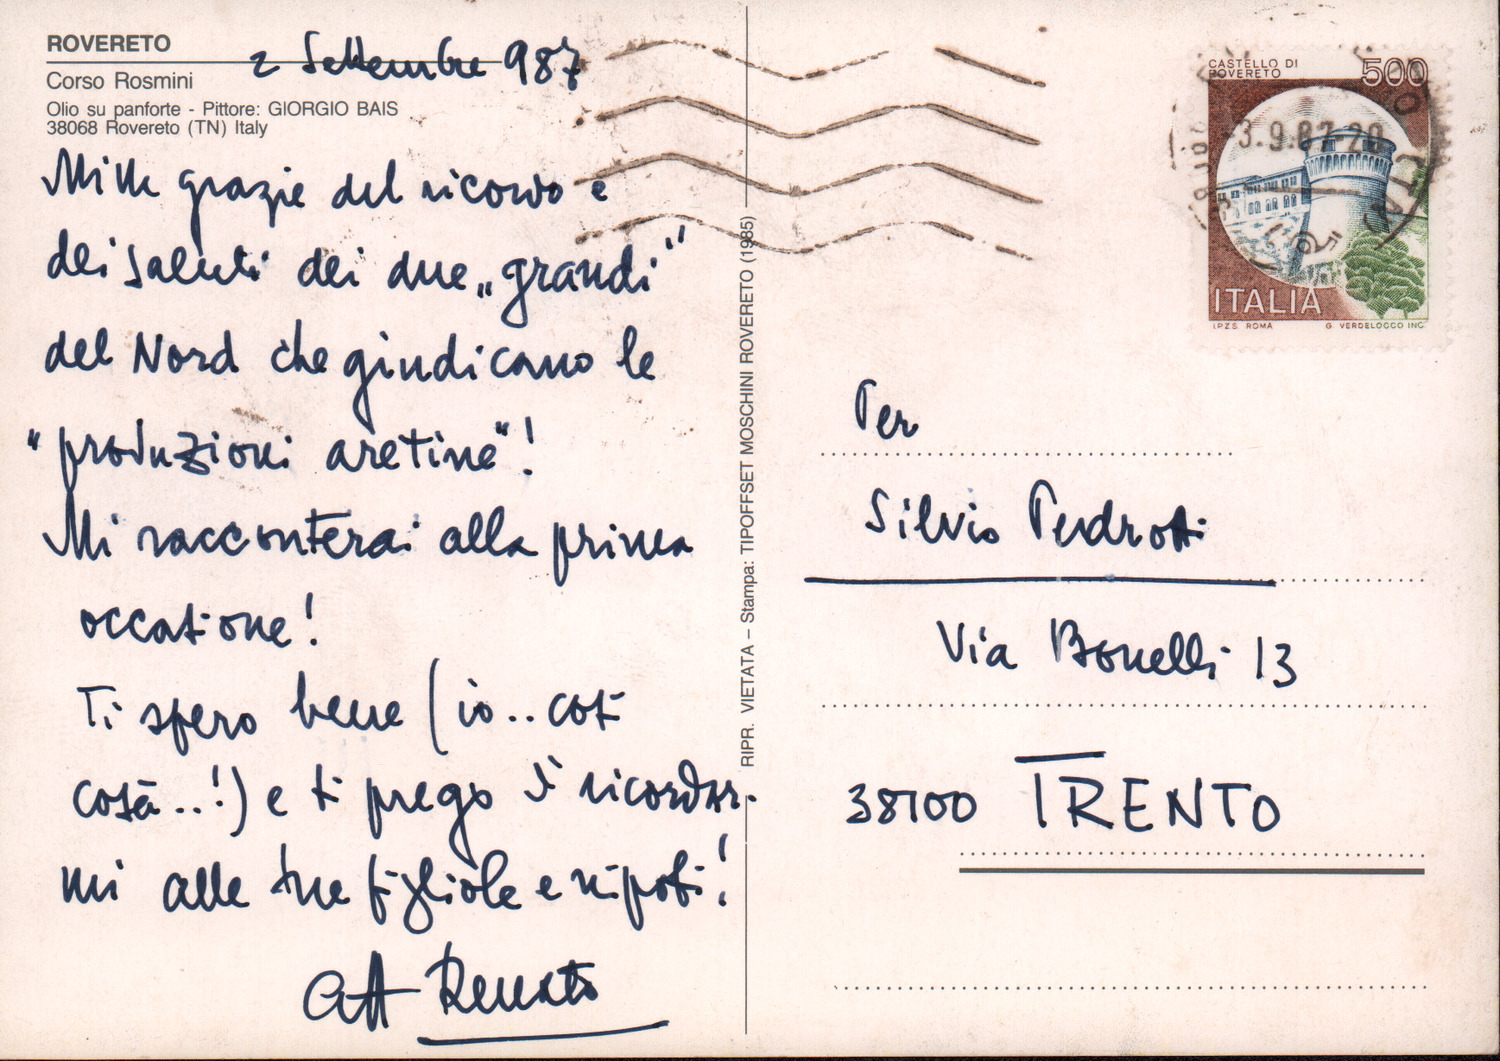 ROVERETO
2 Settembre 987
Corso Rosmini
Olio su panforte - Pittore: GIORGIO BAIS
38068 Rovereto (TN) Italy
Mille grazie del ricordo e
dei saluti dei due „grandi"
del Nord che giudicano le
"produzioni aretine"!
Mi racconterai alla prima
occasione!
Ti spero bene (io..così
cosà..!) e ti prego di ricordar-
mi alle tue figliole e nipoti!
aff Renato
RIPR. VIETATA – Stampa: TIPOFFSET MOSCHINI ROVERETO (1985)
CASTELLO DI
ROVERETO
500
3.9.87-20
ITALIA
I.P.Z.S. ROMA G. VERDELOCCO INC.
Per
Silvio Pedrotti
Via Bonelli 13
38100 TRENTO